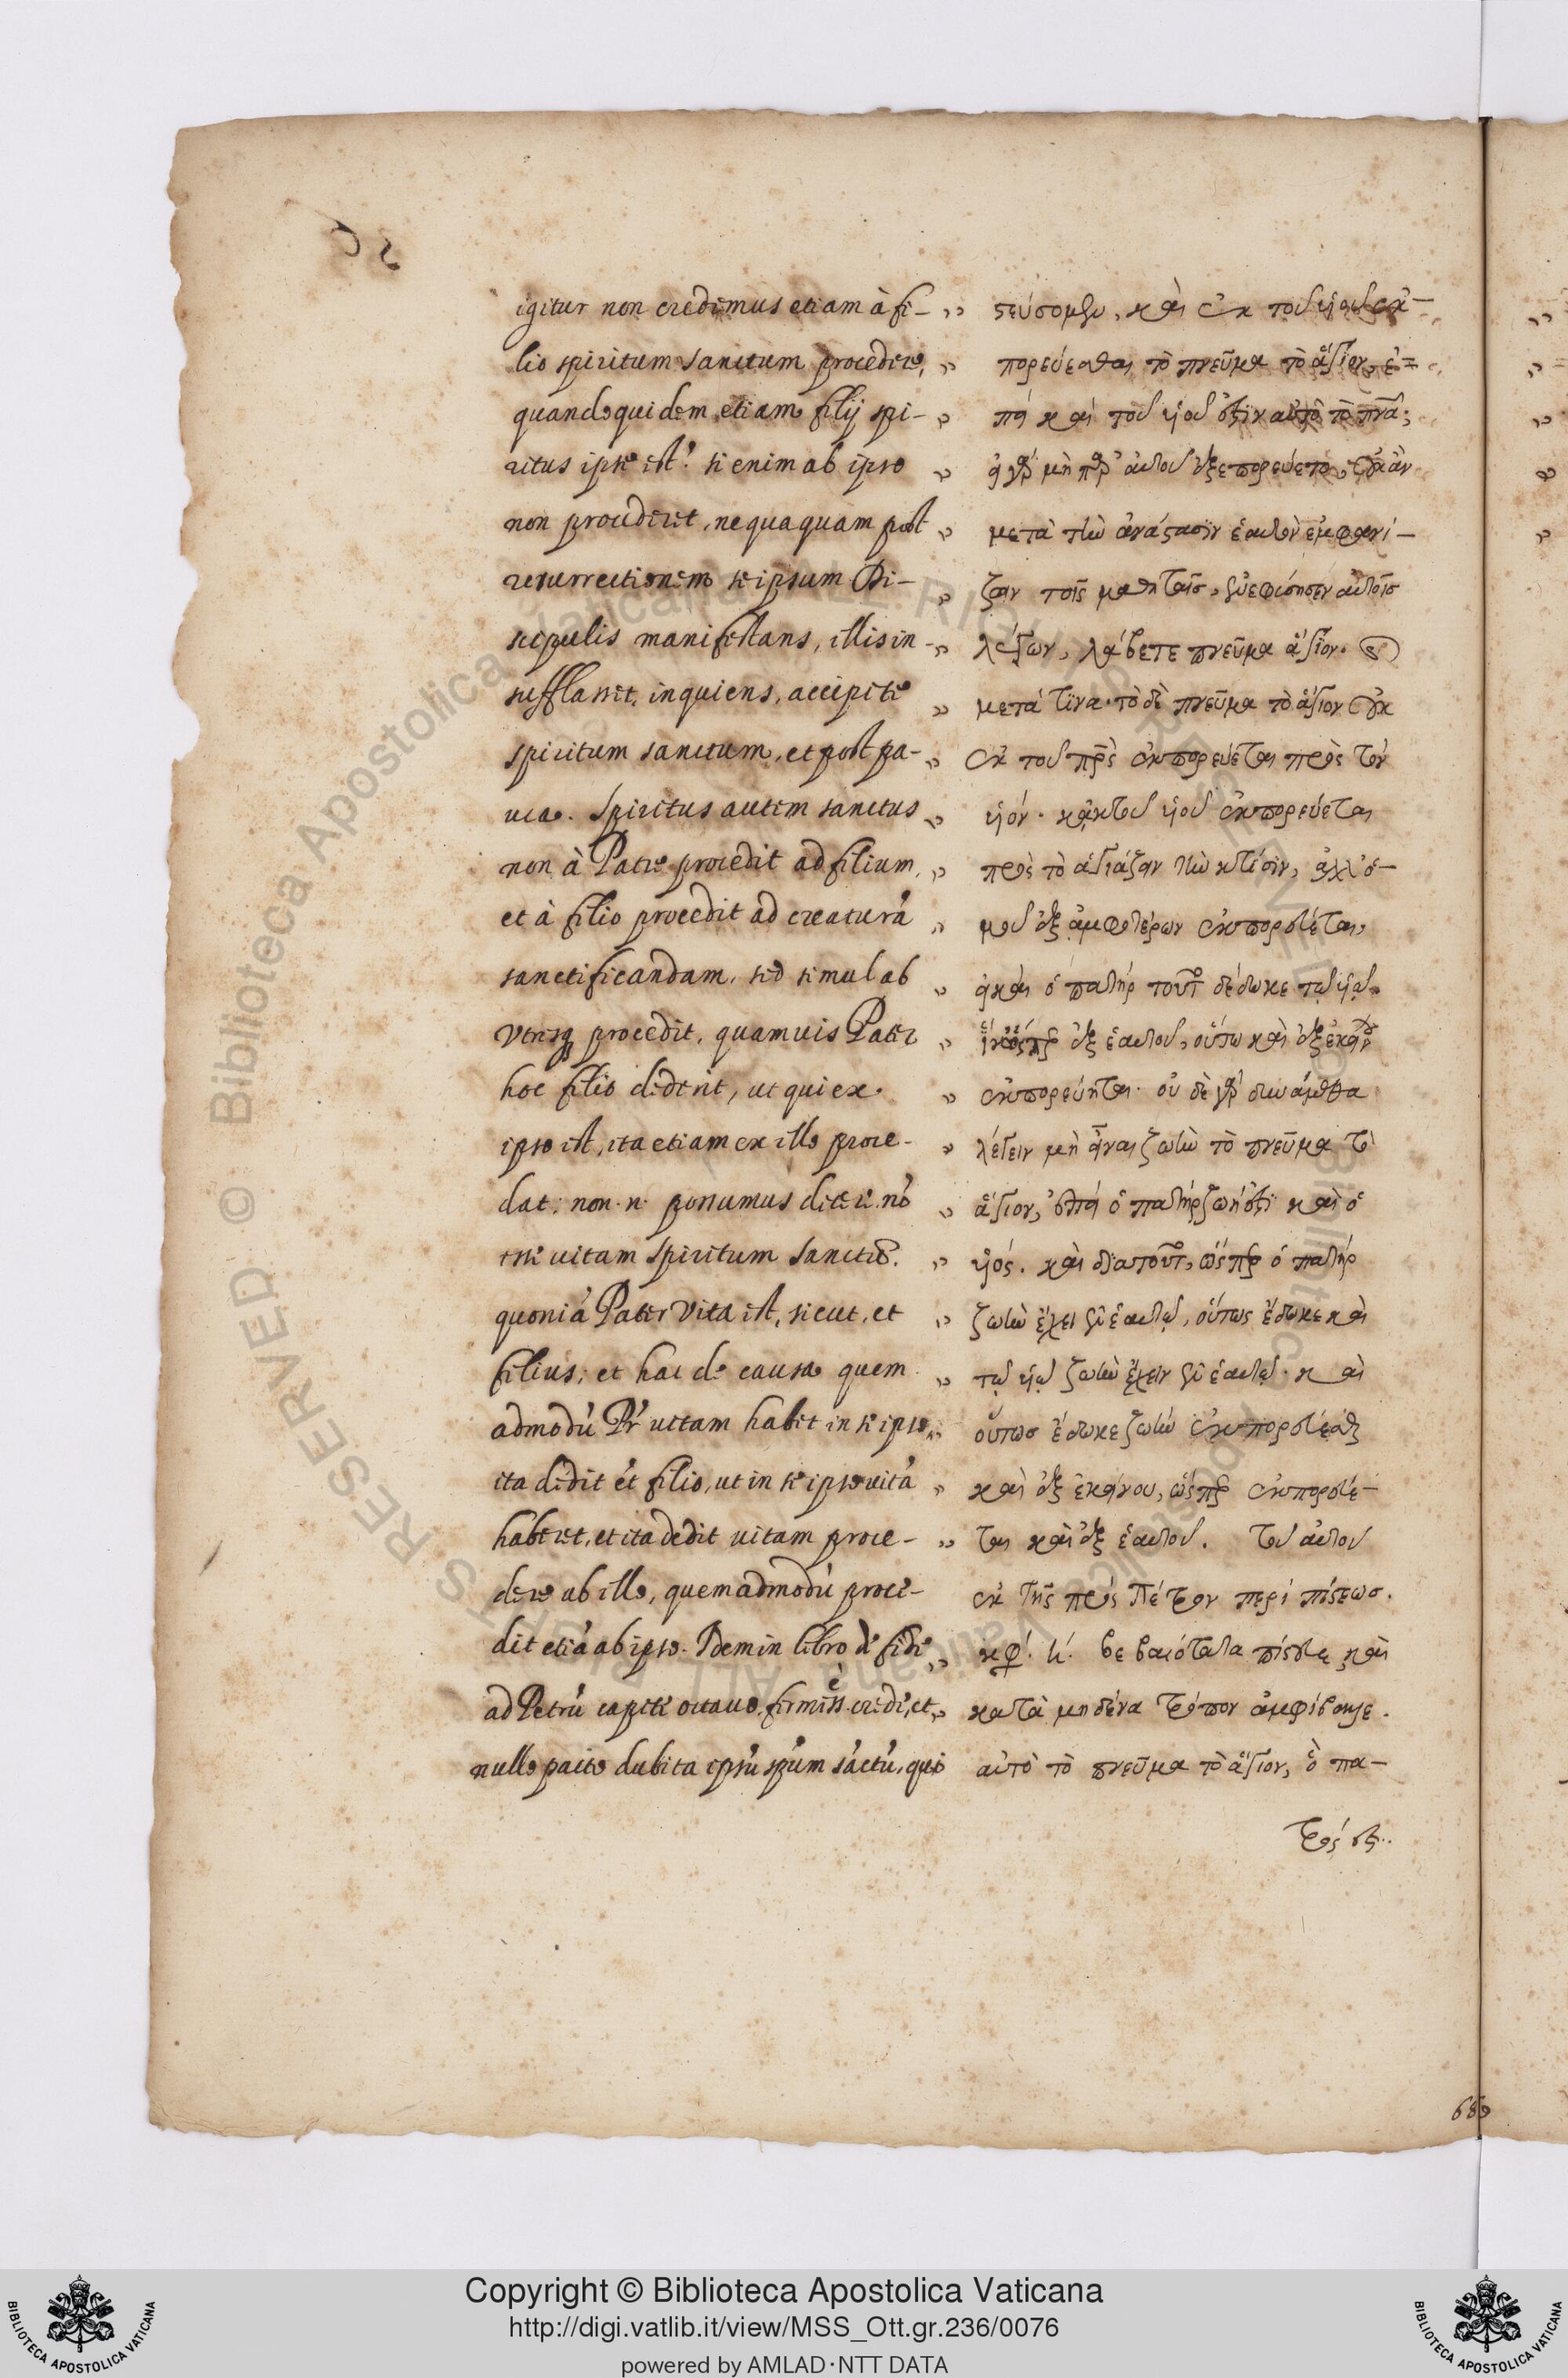 igitur non credimus etiam à fi-
lio spiritum sanctum procedere,
quandoquidem etiam filij spi-
ritus ipse est? si enim ab ipso
non procederet, nequaquam post
resurrectionem seipsum Di-
scipulis manifestans, illis in-
sufflasset, inquiens, accipite
spiritum sanctum, et post pa-
uca. Spiritus autem sanctus
non à Patre procedit ad filium,
et à filio procedit ad creaturã
sanctificandam, sed simul ab
Vtrisq; procedit, quamuis Pater
hoc filio dederit, ut qui ex
ipso est, ita etiam ex illo proce-
dat; non .n. possumus dicere nõ
esse uitam spiritum sanctũ.
quoniã Pater Vita est, sicut, et
filius; et hac de causa quem
admodũ Pr̃ uitam habet in se ipso,
ita dedit et filio, ut in se ipso uitã
haberet, et ita dedit uitam proce-
dere ab illo, quemadmodũ proce-
dit etiã ab ipso. Idem in libro de fide
ad Petrũ capite octauo, firmiss.è crede, et
nullo pacto dubita ipsũ spũm sãctũ, qui
στεύσομεν, καὶ ἐκ τοῦ υἱοῦ ἐκ-
πορεύεσθαι τὸ πνεῦμα τὸ ἅγιον, ἐ=
πεὶ καὶ τοῦ υἱοῦ ἐστὶν αὐτὸ τὸ πνα;
εἰ γὰρ μὴ παρ' αὐτοῦ ἐξεπορεύετο, οὐκ ἂν
μετὰ τὴν ἀνάστασιν ἑαυτὸν ἐμφανί-
ζων τοῖς μαθηταῖς, ἐνεφύσησεν αὐτοῖς
λέγων, λάβετε πνεῦμα ἅγιον. καὶ
μετά τινα. τὸ δὲ πνεῦμα τὸ ἅγιον οὐκ
ἐκ τοῦ πρς ἐκπορεύεται πρὸς τὸν
υἱόν. κἀκ τοῦ υἱοῦ ἐκπορεύεται
πρὸς τὸ ἁγιάζειν τὴν κτίσιν, ἀλλ' ὁ-
μοῦ ἐξ ἀμφοτέρων ἐκπορεύεται,
εἰ καὶ ὁ πατὴρ τοῦτο δέδωκε τῷ υἱῷ.
ἵν' ὥσπερ ἐξ ἑαυτοῦ, οὕτω καὶ ἐξ ἐκείνου
ἐκπορεύηται. οὐδὲ γὰρ δυνάμεθα
λέγειν μὴ εἶναι ζωὴν τὸ πνεῦμα τὸ
ἅγιον, ἐπεὶ ὁ πατὴρ ζωή ἐστι καὶ ὁ
υἱός. καὶ διατοῦτο, ὥσπερ ὁ πατὴρ
ζωὴν ἔχει ἐν ἑαυτῷ, οὕτως ἔδωκε καὶ
τῷ υἱῷ ζωὴν ἔχειν ἐν ἑαυτῷ. καὶ
οὕτως ἔδωκε ζωὴν ἐκπορεύεσθαι
καὶ ἐξ ἐκείνου, ὥσπερ ἐκπορεύε-
ται καὶ ἐξ ἑαυτοῦ. Τοῦ αὐτοῦ
ἐκ τῆς πρὸς Πέτρον περὶ πίστεως.
κεφ. η. βεβαιότατα πίστευε καὶ
κατὰ μηδένα τρόπον ἀμφίβαλλε.
αὐτὸ τὸ πνεῦμα τὸ ἅγιον, ὃ πα-
τρός ἐστι..
Copyright © Biblioteca Apostolica Vaticana
http://digi.vatlib.it/view/MSS_Ott.gr.236/0076
powered by AMLAD·NTT DATA